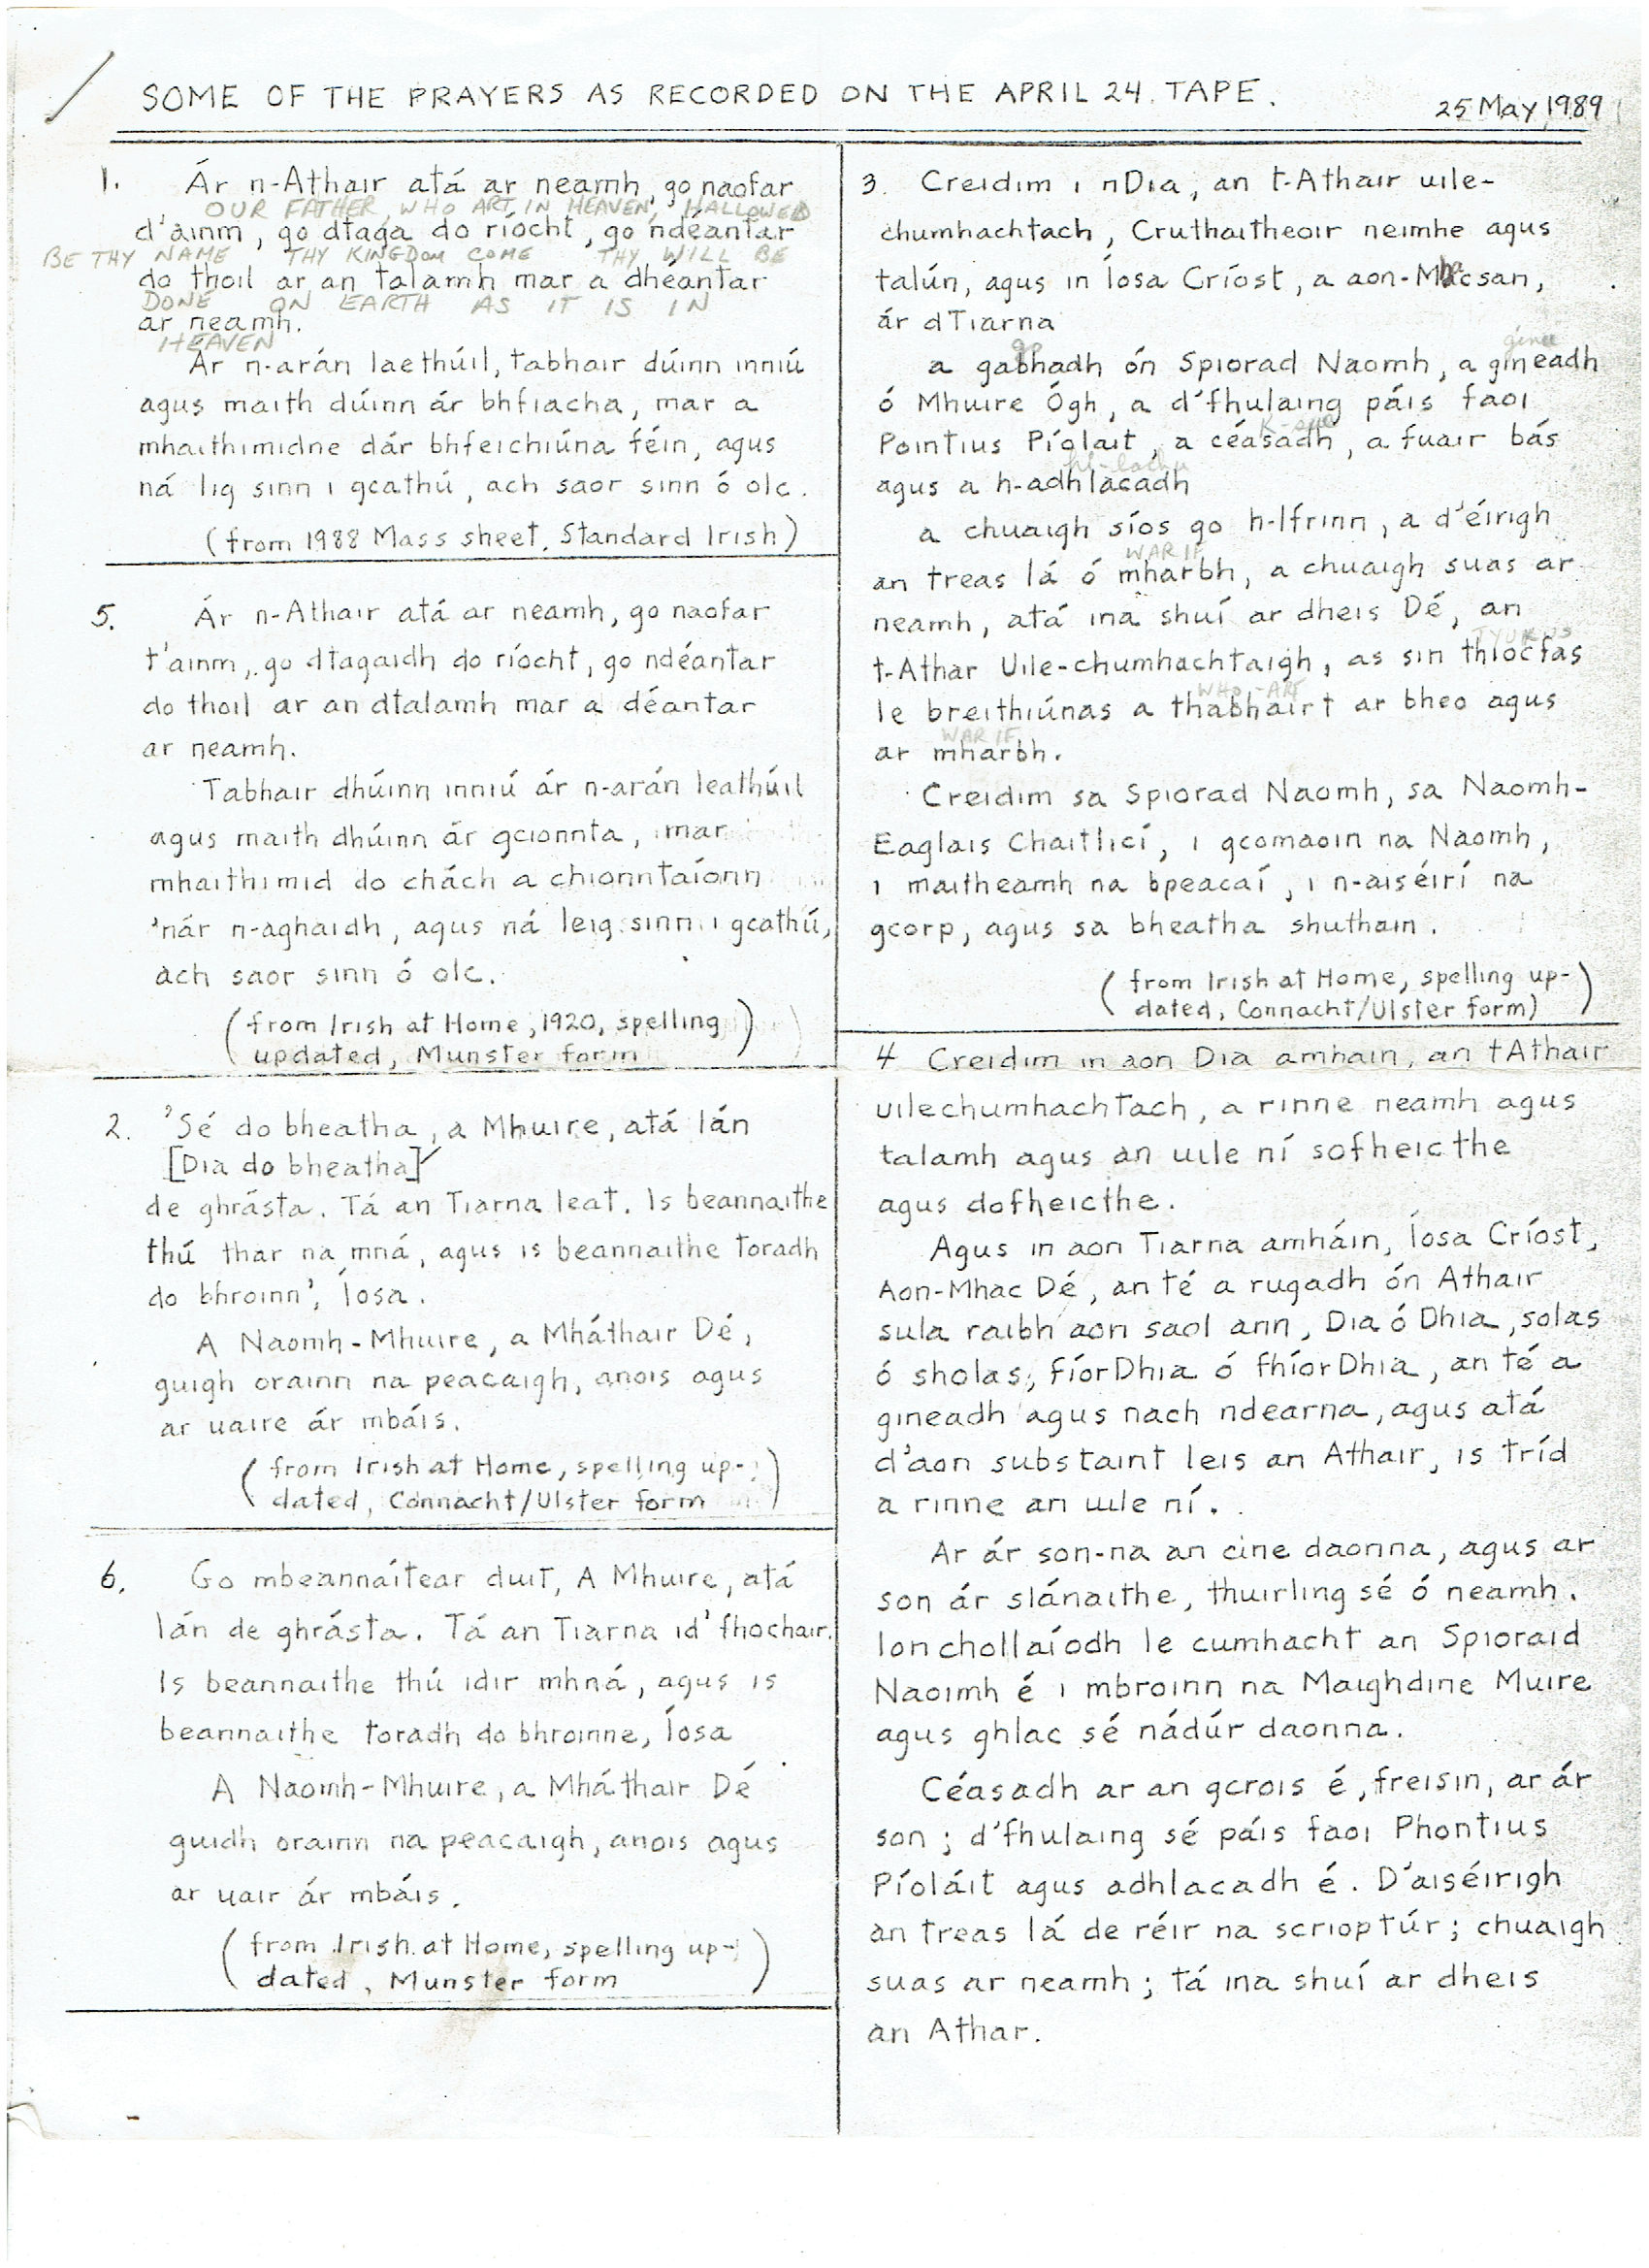 SOME OF THE PRAYERS AS RECORDED ON THE APRIL 24 TAPE.
25 May 1989
1. Ár n-Athair atá ar neamh, go naofar
OUR FATHER, WHO ART IN HEAVEN, HALLOWED
d'ainm, go dtaga do ríocht, go ndéantar
BE THY NAME THY KINGDOM COME THY WILL BE
do thoil ar an talamh mar a dhéantar
DONE ON EARTH AS IT IS IN
ar neamh.
HEAVEN
Ár n-arán laethúil, tabhair dúinn inniú
agus maith dúinn ár bhfiacha, mar a
mhaithimidne dár bhfeichiúna féin, agus
ná lig sinn i gcathú, ach saor sinn ó olc.
(from 1988 Mass sheet, Standard Irish)
5. Ár n-Athair atá ar neamh, go naofar
t'ainm, go dtagaidh do ríocht, go ndéantar
do thoil ar an dtalamh mar a déantar
ar neamh.
Tabhair dhúinn inniú ár n-arán leathúil
agus maith dhúinn ár gcionnta, mar
mhaithimid do chách a chionntaíonn
'nár n-aghaidh, agus ná leig sinn i gcathú,
ach saor sinn ó olc.
(from Irish at Home, 1920, spelling
updated, Munster form)
2. 'Sé do bheatha, a Mhuire, atá lán
[Dia do bheatha]
de ghrásta. Tá an Tiarna leat. Is beannaithe
thú thar na mná, agus is beannaithe toradh
do bhroinn', Íosa.
A Naomh-Mhuire, a Mháthair Dé,
guigh orainn na peacaigh, anois agus
ar uaire ár mbáis.
(from Irish at Home, spelling up-
dated, Connacht/Ulster form)
6. Go mbeannaítear duit, A Mhuire, atá
lán de ghrásta. Tá an Tiarna id' fhochair.
Is beannaithe thú idir mhná, agus is
beannaithe toradh do bhroinne, Íosa
A Naomh-Mhuire, a Mháthair Dé
guidh orainn na peacaigh, anois agus
ar uair ár mbáis.
(from Irish at Home, spelling up-
dated, Munster form)
3. Creidim i nDia, an t-Athair uile-
chumhachtach, Cruthaitheoir neimhe agus
talún, agus in Íosa Críost, a aon-Mhacsan,
ár dTiarna
a gabhadh ón Spiorad Naomh, a gineadh
ó Mhuire Ógh, a d'fhulaing páis faoi
Pointius Píoláit, a céasadh, a fuair bás
agus a h-adhlacadh
a chuaigh síos go h-Ifrinn, a d'éirigh
WAR IF
an treas lá ó mharbh, a chuaigh suas ar
neamh, atá ina shuí ar dheis Dé, an
t-Athar Uile-chumhachtaigh, as sin thiocfas
WHO-ART
le breithiúnas a thabhairt ar bheo agus
WAR IF
ar mharbh.
Creidim sa Spiorad Naomh, sa Naomh-
Eaglais Chaitlicí, i gcomaoin na Naomh,
i maitheamh na bpeacaí, i n-aiséirí na
gcorp, agus sa bheatha shuthain.
(from Irish at Home, spelling up-
dated, Connacht/Ulster form)
4 Creidim in aon Dia amhain, an tAthair
uilechumhachtach, a rinne neamh agus
talamh agus an uile ní sofheicthe
agus dofheicthe.
Agus in aon Tiarna amháin, Íosa Críost,
Aon-Mhac Dé, an té a rugadh ón Athair
sula raibh aon saol ann, Dia ó Dhia, solas
ó sholas, fíorDhia ó fhíorDhia, an té a
gineadh agus nach ndearna, agus atá
d'aon substaint leis an Athair, is tríd
a rinne an uile ní.
Ar ár son-na an cine daonna, agus ar
son ár slánaithe, thuirling sé ó neamh.
Ionchollaíodh le cumhacht an Spioraid
Naoimh é i mbroinn na Maighdine Muire
agus ghlac sé nádúr daonna.
Céasadh ar an gcrois é, freisin, ar ár
son; d'fhulaing sé páis faoi Phontius
Píoláit agus adhlacadh é. D'aiséirigh
an treas lá de réir na scrioptúr; chuaigh
suas ar neamh; tá ina shuí ar dheis
an Athar.